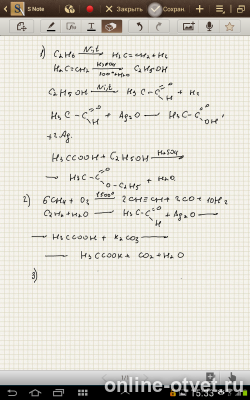 S Note
Закрыть
Сохран
1) C2H6 Ni,t H2C=CH2+H2
H2C=CH2 + H2O C2H5OH
C2H5OH Ni,t H3C-C=O H + H2
H3C-C=O H + Ag2O — H3C-C=O OH +
+2Ag.
H3CCOOH + C2H5OH H2SO4
→ H3C-C=O O-C2H5 + H2O
2) 6CH4 + O2 1500° 2CH≡CH + 2CO + 10H2
C2H2+H2O — H3C-C=O H + Ag2O —
— H3CCOOH + K2CO3 —
— H3CCOOK + CO2 + H2O
3)
1/1
15:33
online-otvet.ru